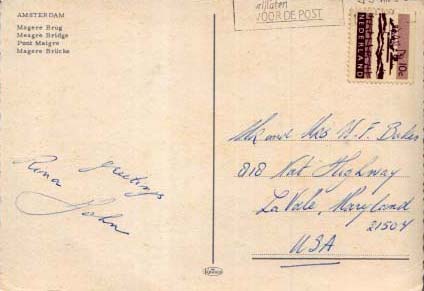 AMSTERDAM
Magere Brug
Meagre Bridge
Pont Maigre
Magere Brücke
vrijlaten
VOOR DE POST
NEDERLAND
10c
Greetings
John
Mr and Mrs W. F. Baker
818 Nat Highway
LaVale, Maryland
21504
USA